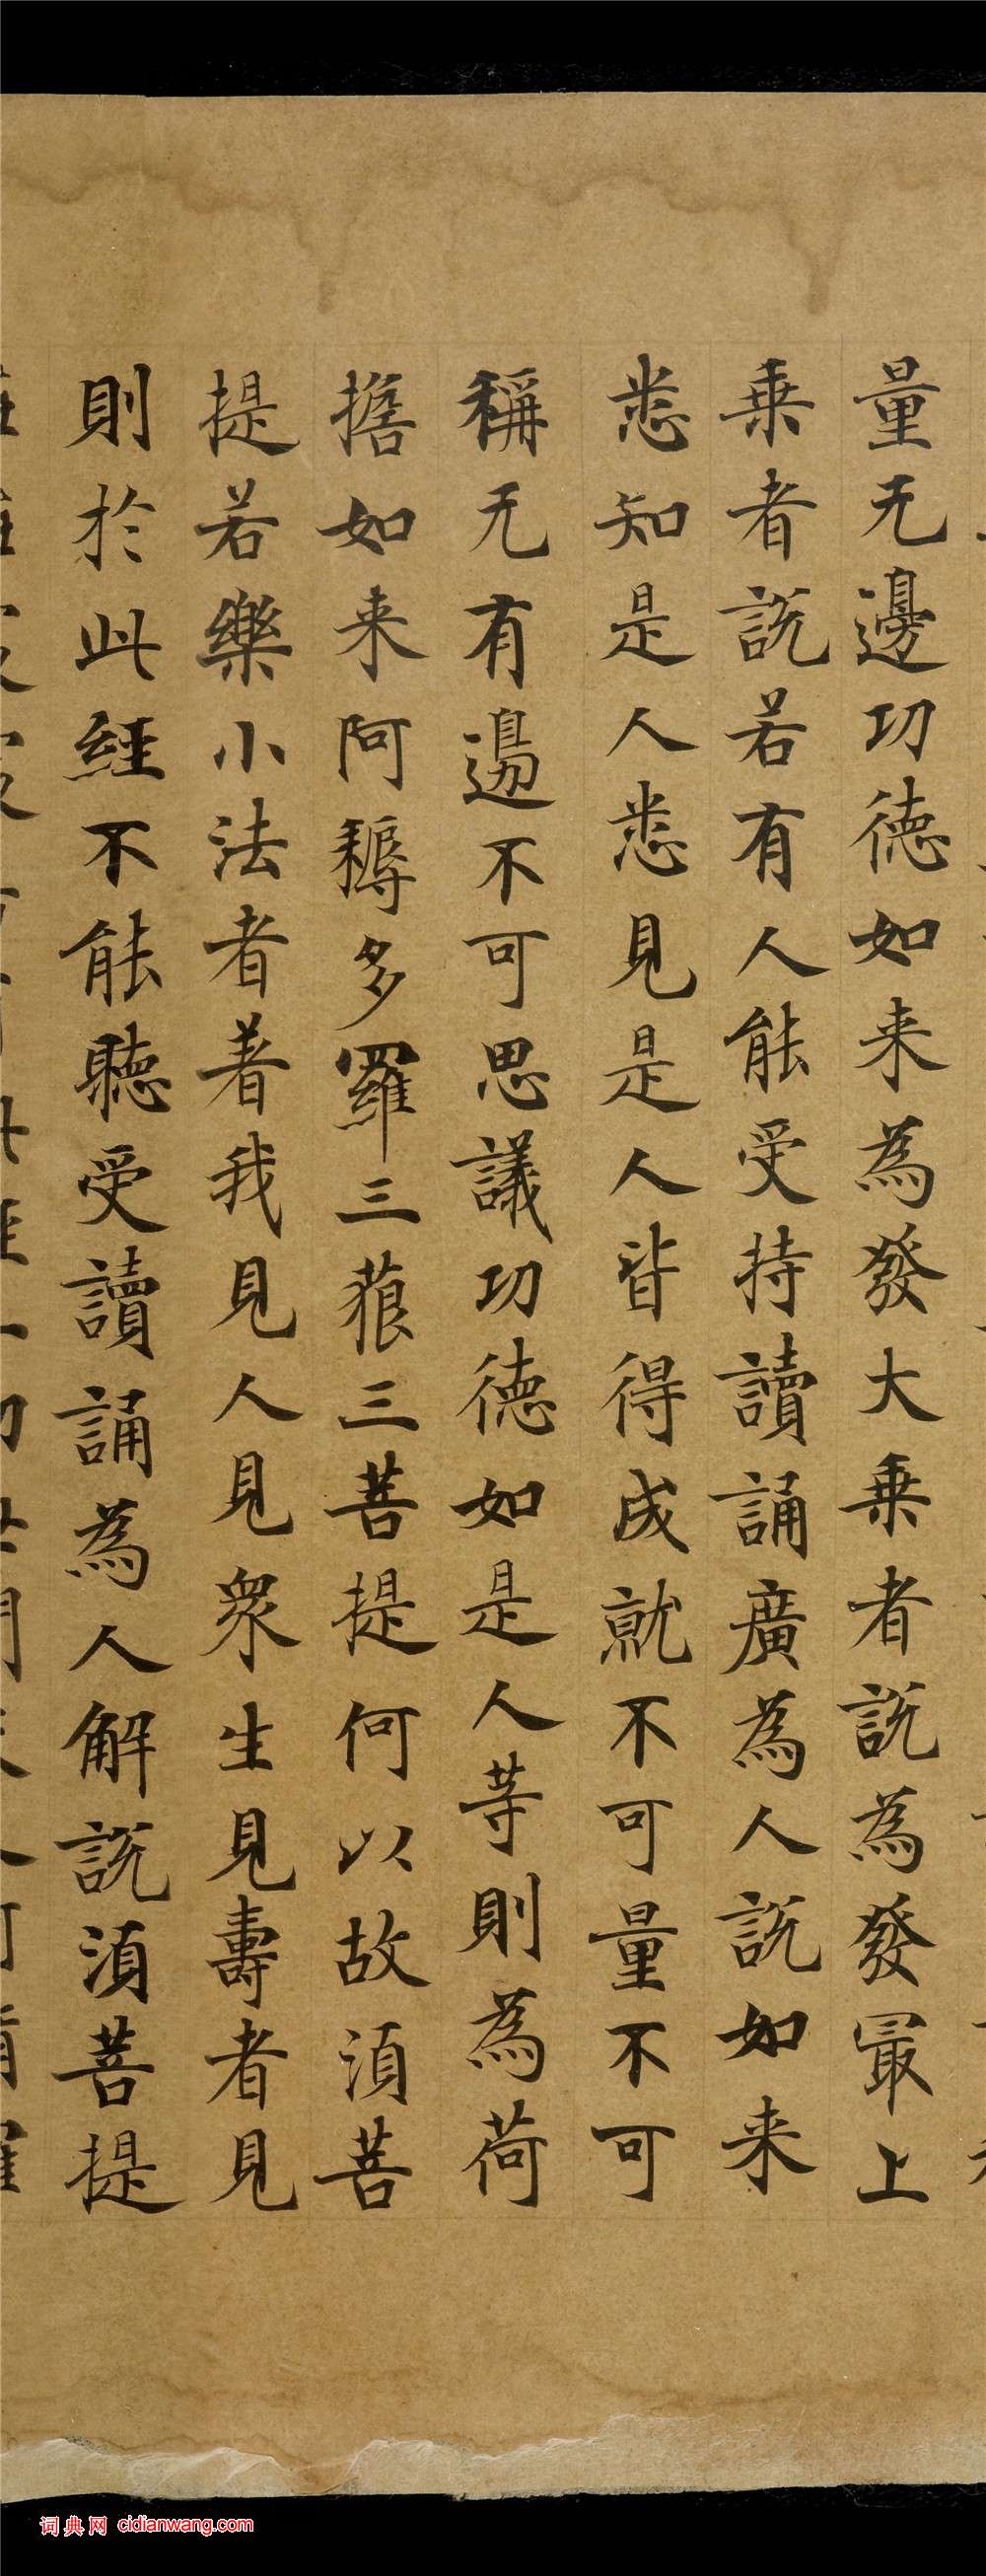 量无邊功德如来為發大乗者説為發冣上
乗者説若有人能受持讀誦廣為人説如来
悉知是人悉見是人皆得成就不可量不可
稱无有邊不可思議功德如是人等則為荷
擔如来阿耨多羅三藐三菩提何以故湏菩
提若樂小法者着我見人見衆生見壽者見
則於此經不能聽受讀誦為人解説湏菩提
词典网 cidianwang.com